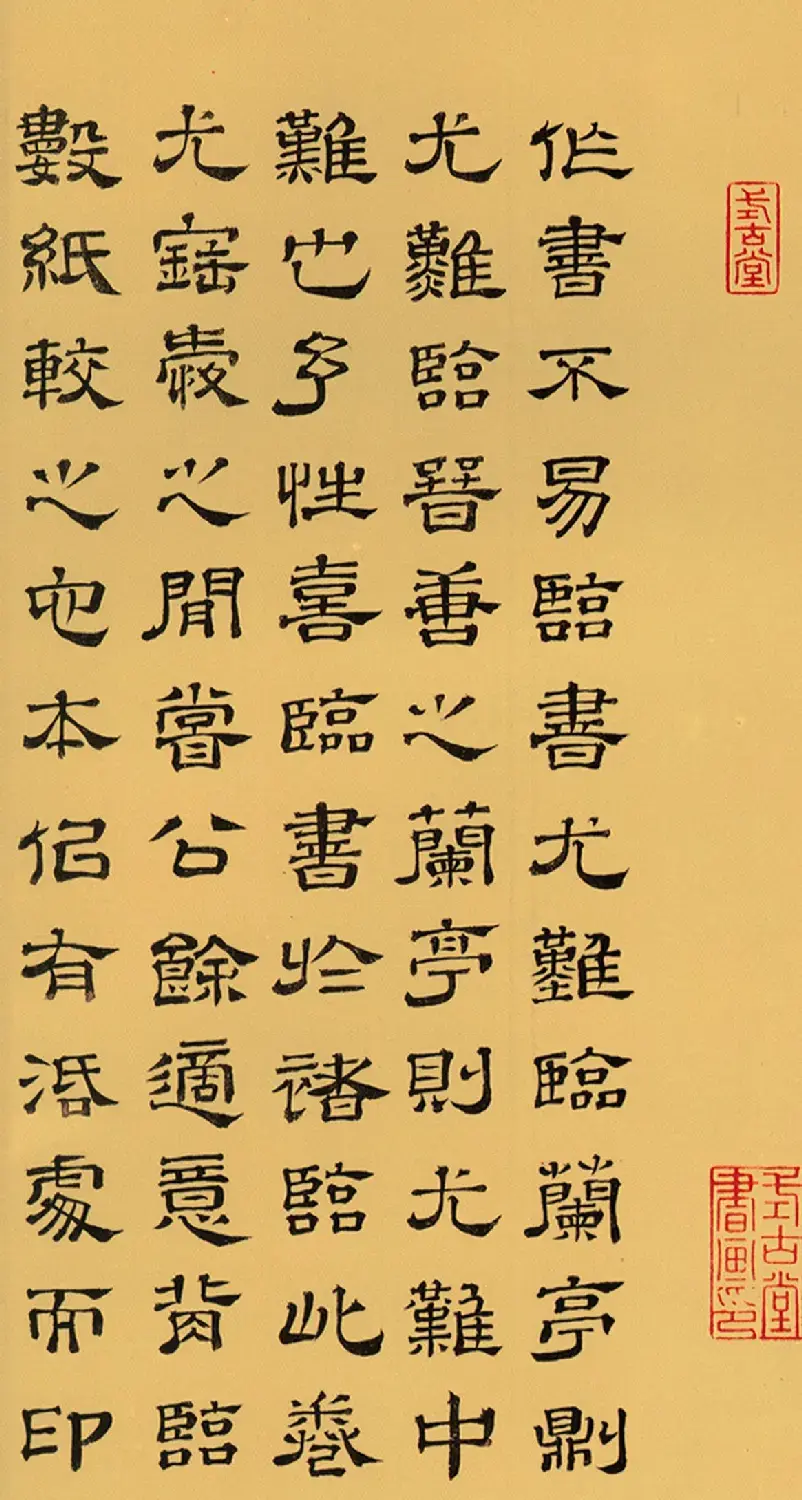 式古堂
式古堂書畫印
作書不易臨書尤難臨蘭亭則
尤難臨晉善之蘭亭則尤難中
難也予性喜臨書於諸臨此卷
尤寶愛之閒嘗公餘適意背臨
數紙較之他本似有活處而印